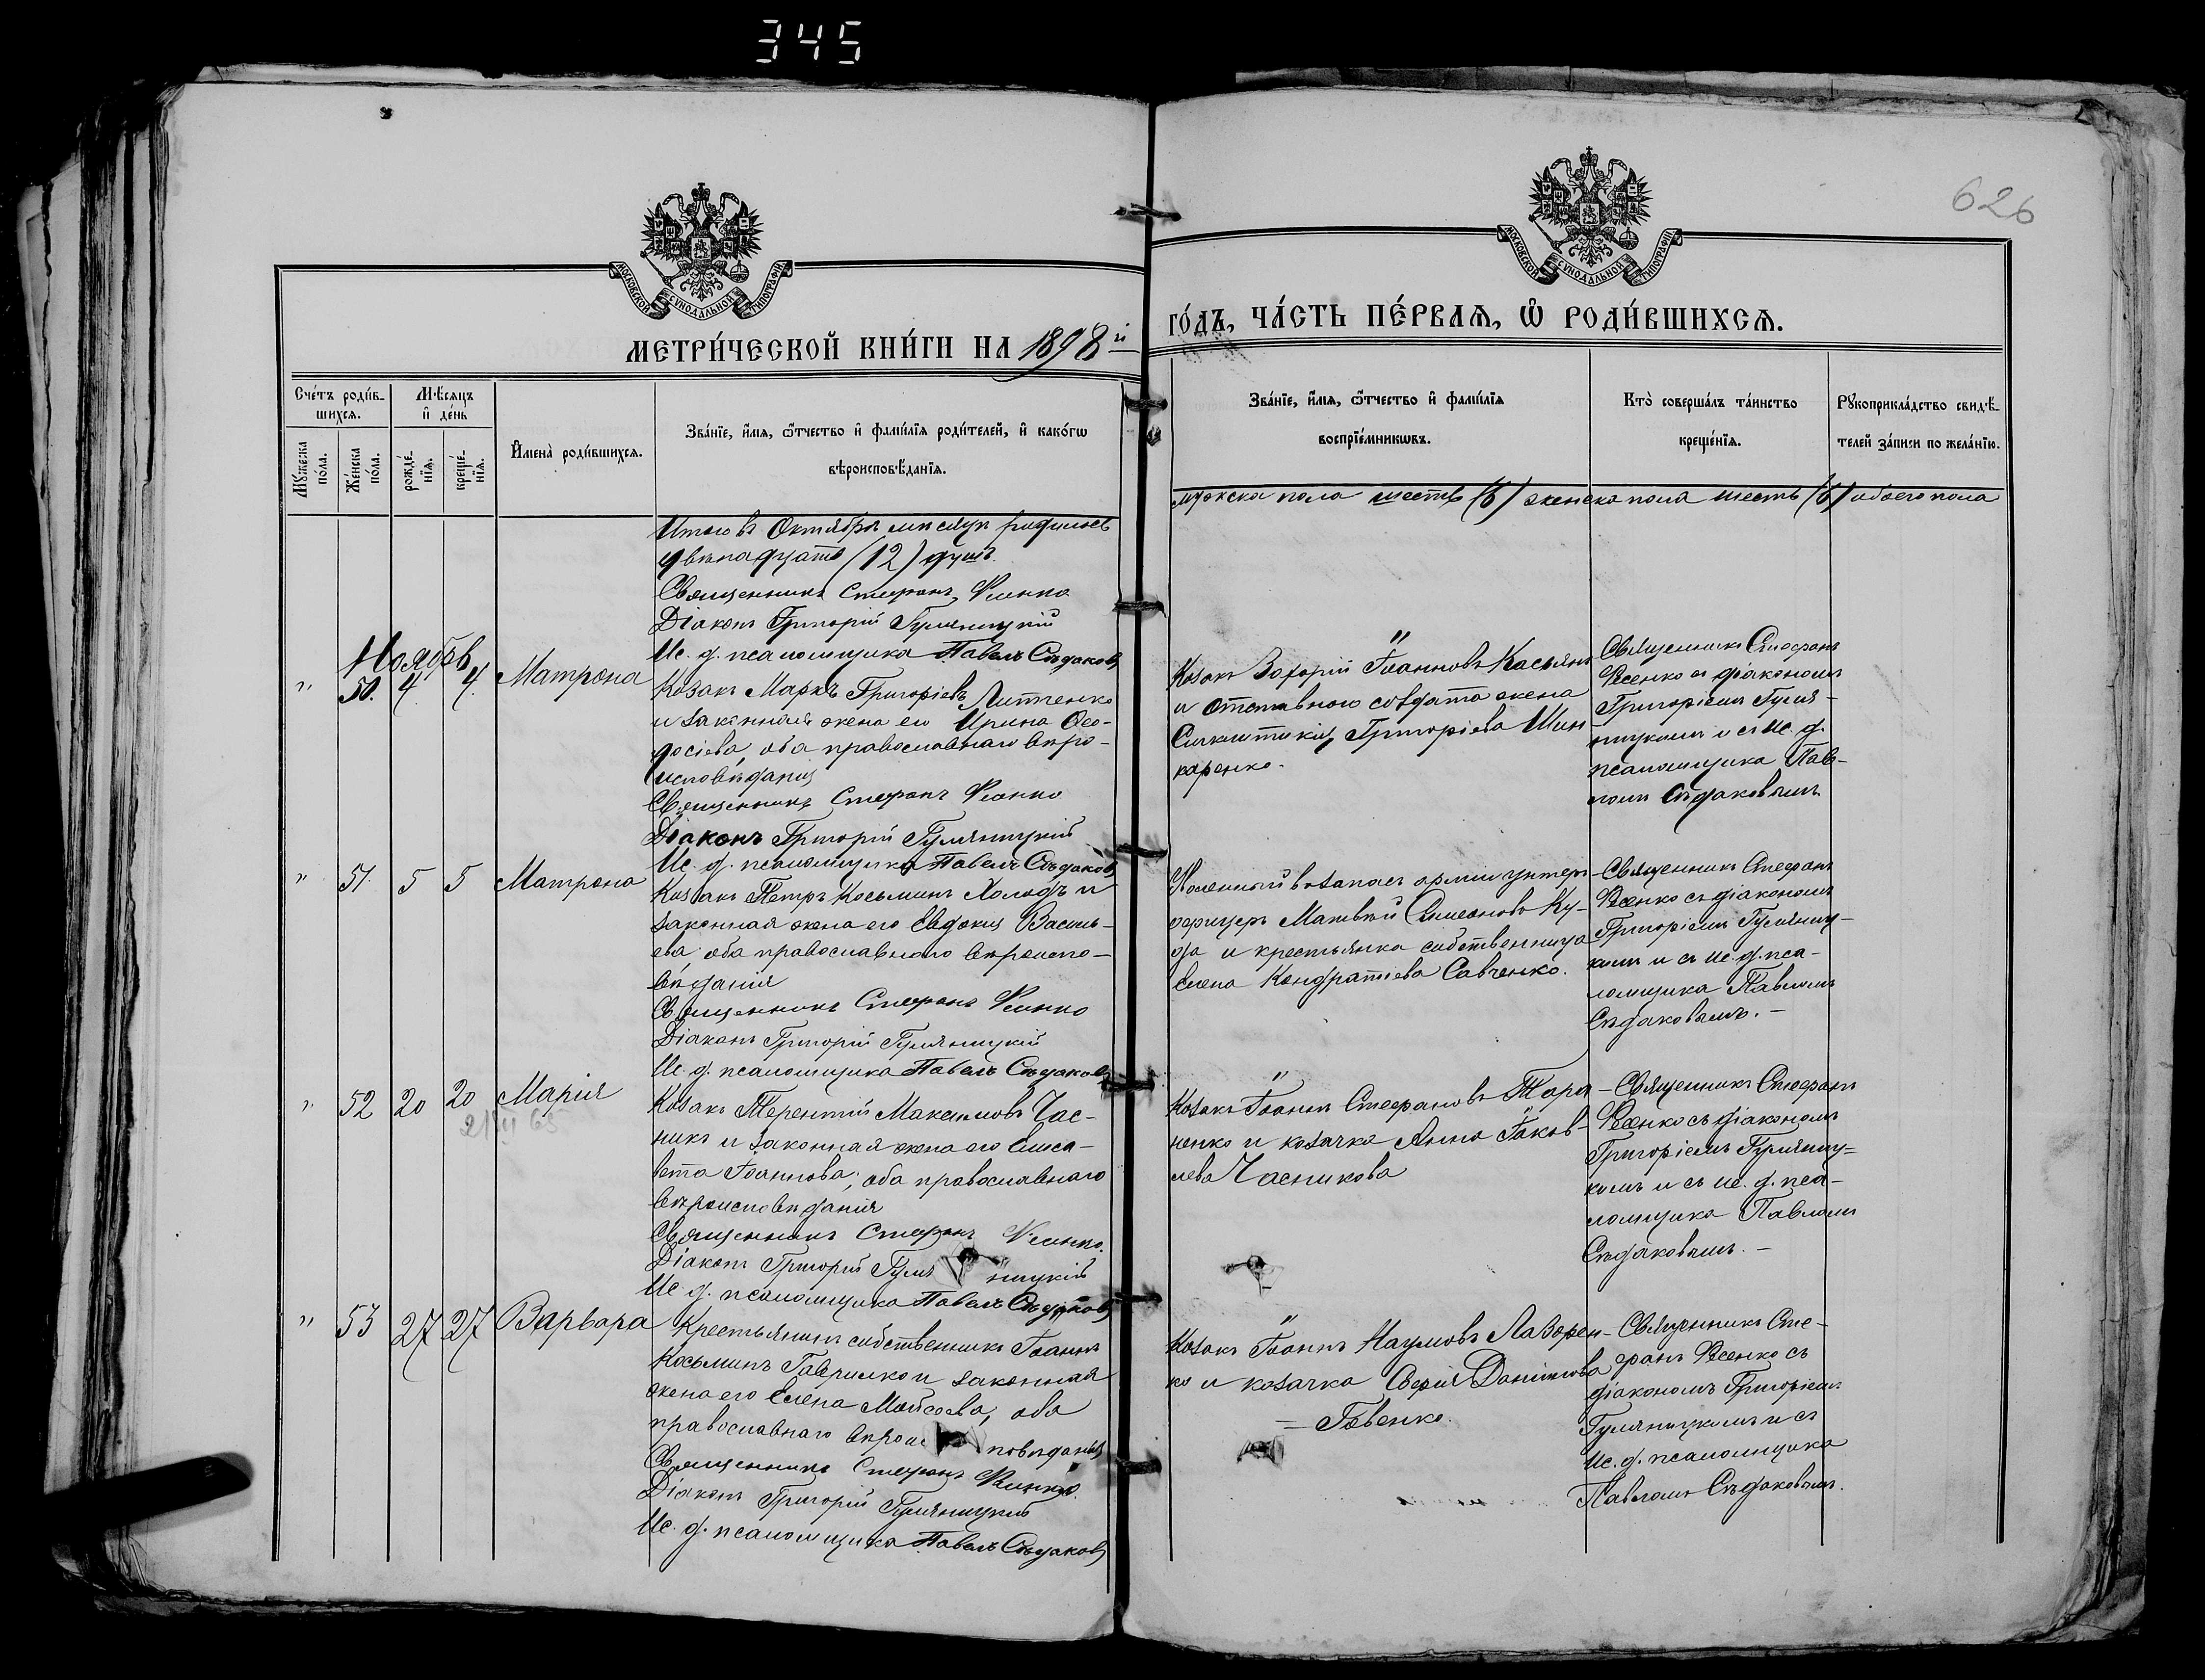 345
626
МОСКОВСКОЙ СУНОДАЛЬНОЙ ТИПОГРАФІИ
МОСКОВСКОЙ СУНОДАЛЬНОЙ ТИПОГРАФІИ
МЕТРИ́ЧЕСКОЙ КНИ́ГИ НА 1898й
ГО́ДЪ, ЧА́СТЬ ПЕ́РВАѦ, Ѡ҆ РОДИ́ВШИХСѦ.
Сче́тъ роди́в-
шихсѧ.
Мѣ́сѧцъ
и҆ де́нь
Мꙋ́жеска
по́ла.
Же́нска
по́ла.
рожде́-
нїѧ.
креще́-
нїѧ.
И҆мена̀ роди́вшихсѧ.
Зва́нїе, и҆́мѧ, ѻ҆́тчество и҆ фами́лїѧ роди́телей, и҆ како́гѡ
вѣроисповѣ́данїѧ.
Зва́нїе, и҆́мѧ, ѻ҆́тчество и҆ фами́лїѧ
воспрїе́мникѡвъ.
Кто̀ соверша́лъ та́инство
креще́нїѧ.
Рꙋкоприкла́дство свидѣ́-
телей за́писи по жела́нїю.
Итого въ Октябрѣ мѣсяцѣ родилось
мужска пола шесть (6) женска пола шесть (6) обоего пола
двѣнадцать (12) душъ.
Священникъ Стефанъ Ѳесенко
Діаконъ Григорій Гуляницкій
Ис. д. псаломщика Павелъ Сѣдаковъ
Ноябрь
" 50. 4. 4. Матрона
Козакъ Маркъ Григоріевъ Литченко
и законная жена его Ирина Ѳео-
досіева, оба православнаго вѣро-
исповѣданія
Священникъ Стефанъ Ѳесенко
Діаконъ Григорій Гуляницкій
Ис. д. псаломщика Павелъ Сѣдаковъ
Козакъ Захарій Іоанновъ Касьянъ
и отставного солдата жена
Григоріева Шин-
каренко.
Священникъ Стефанъ
Ѳесенко съ діакономъ
Григоріемъ Гуля-
ницкимъ и съ Ис. д.
псаломщика Пав-
ломъ Сѣдаковымъ
" 51. 5 5 Матрона
Козакъ Петръ Косьминъ Холодъ и
законная жена его Евдокія Василь-
ева, оба православнаго вѣроиспо-
вѣданія
Священникъ Стефанъ Ѳесенко
Діаконъ Григорій Гуляницкій
Ис. д. псаломщика Павелъ Сѣдаковъ
Уволенный въ запасъ арміи унтеръ-
офицеръ Матвѣй Симеоновъ Ку-
да и крестьянка собственница
Елена Кондратіева Савченко.
Священникъ Стефанъ
Ѳесенко съ діакономъ
Григоріемъ Гуляниц-
кимъ и съ ис. д. пса-
ломщика Павломъ
Сѣдаковымъ. -
" 52 20 20 Марія
Козакъ Терентій Максимовъ Час-
никъ и законная жена его Елиса-
вета Іоаннова, оба православнаго
вѣроисповѣданія
Священникъ Стефанъ Ѳесенко.
Діаконъ Григорій Гуляницкій
Ис. д. псаломщика Павелъ Сѣдаковъ
Козакъ Іоаннъ Стефановъ Тара-
ненко и козачка Анна Іаков-
лева Часникова
Священникъ Стефанъ
Ѳесенко съ діакономъ
Григоріемъ Гуляниц=
кимъ и съ ис. д. пса-
ломщика Павломъ
Сѣдаковымъ. -
" 53 27 27 Варвара
Крестьянинъ собственникъ Іоаннъ
Косьминъ Гаврилко и законная
жена его Елена Моисеева, оба
православнаго вѣроисповѣданія
Священникъ Стефанъ Ѳесенко.
Діаконъ Григорій Гуляницкій
Ис. д. псаломщика Павелъ Сѣдаковъ
Козакъ Іоаннъ Наумовъ Лазорен-
ко и козачка Софія Даніилова
= Говенко.
Священникъ Сте-
фанъ Ѳесенко съ
діакономъ Григоріемъ
Гуляницкимъ и съ
Ис. д. псаломщика
Павломъ Сѣдаковымъ.